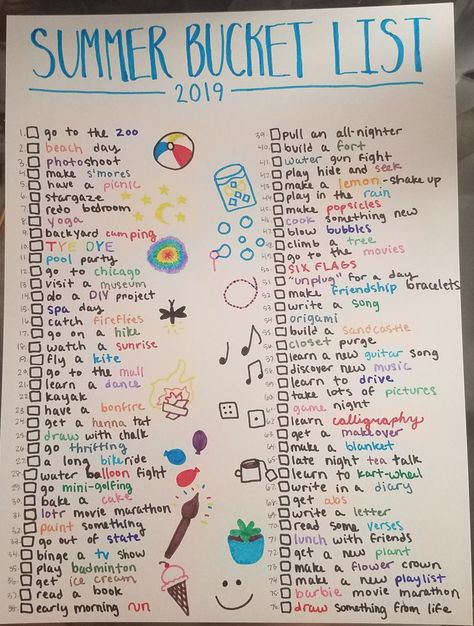 SUMMER BUCKET LIST
2019
1. go to the zoo
2. beach day
3. photoshoot
4. make s'mores
5. have a picnic
6. stargaze
7. redo bedroom
8. yoga
9. backyard camping
10. TYE DYE
11. pool party
12. go to chicago
13. visit a museum
14. do a DIY project
15. spa day
16. catch fireflies
17. go on a hike
18. watch a sunrise
19. fly a kite
20. go to the mall
21. learn a dance
22. kayak
23. have a bonfire
24. get a henna tat
25. draw with chalk
26. go thrifting
27. a long bikeride
28. water balloon fight
29. go mini-golfing
30. bake a cake
31. lotr movie marathon
32. paint something
33. go out of state
34. binge a tv show
35. play badminton
36. get ice cream
37. read a book
38. early morning run
39. pull an all-nighter
40. build a fort
41. water gun fight
42. play hide and seek
43. make a lemon-shake up
44. play in the rain
45. make popsicles
46. cook something new
47. blow bubbles
48. climb a tree
49. go to the movies
50. SIX FLAGS
51. "unplug" for a day
52. make friendship bracelets
53. write a song
54. origami
55. build a sandcastle
56. closet purge
57. learn a new guitar song
58. discover new music
59. learn to drive
60. take lots of pictures
61. game night
62. learn calligraphy
63. get a makeover
64. make a blanket
65. late night tea talk
66. learn to kart-wheel
67. write in a diary
68. get abs
69. write a letter
70. read some verses
71. lunch with friends
72. get a new plant
73. make a flower crown
74. make a new playlist
75. barbie movie marathon
76. draw something from life